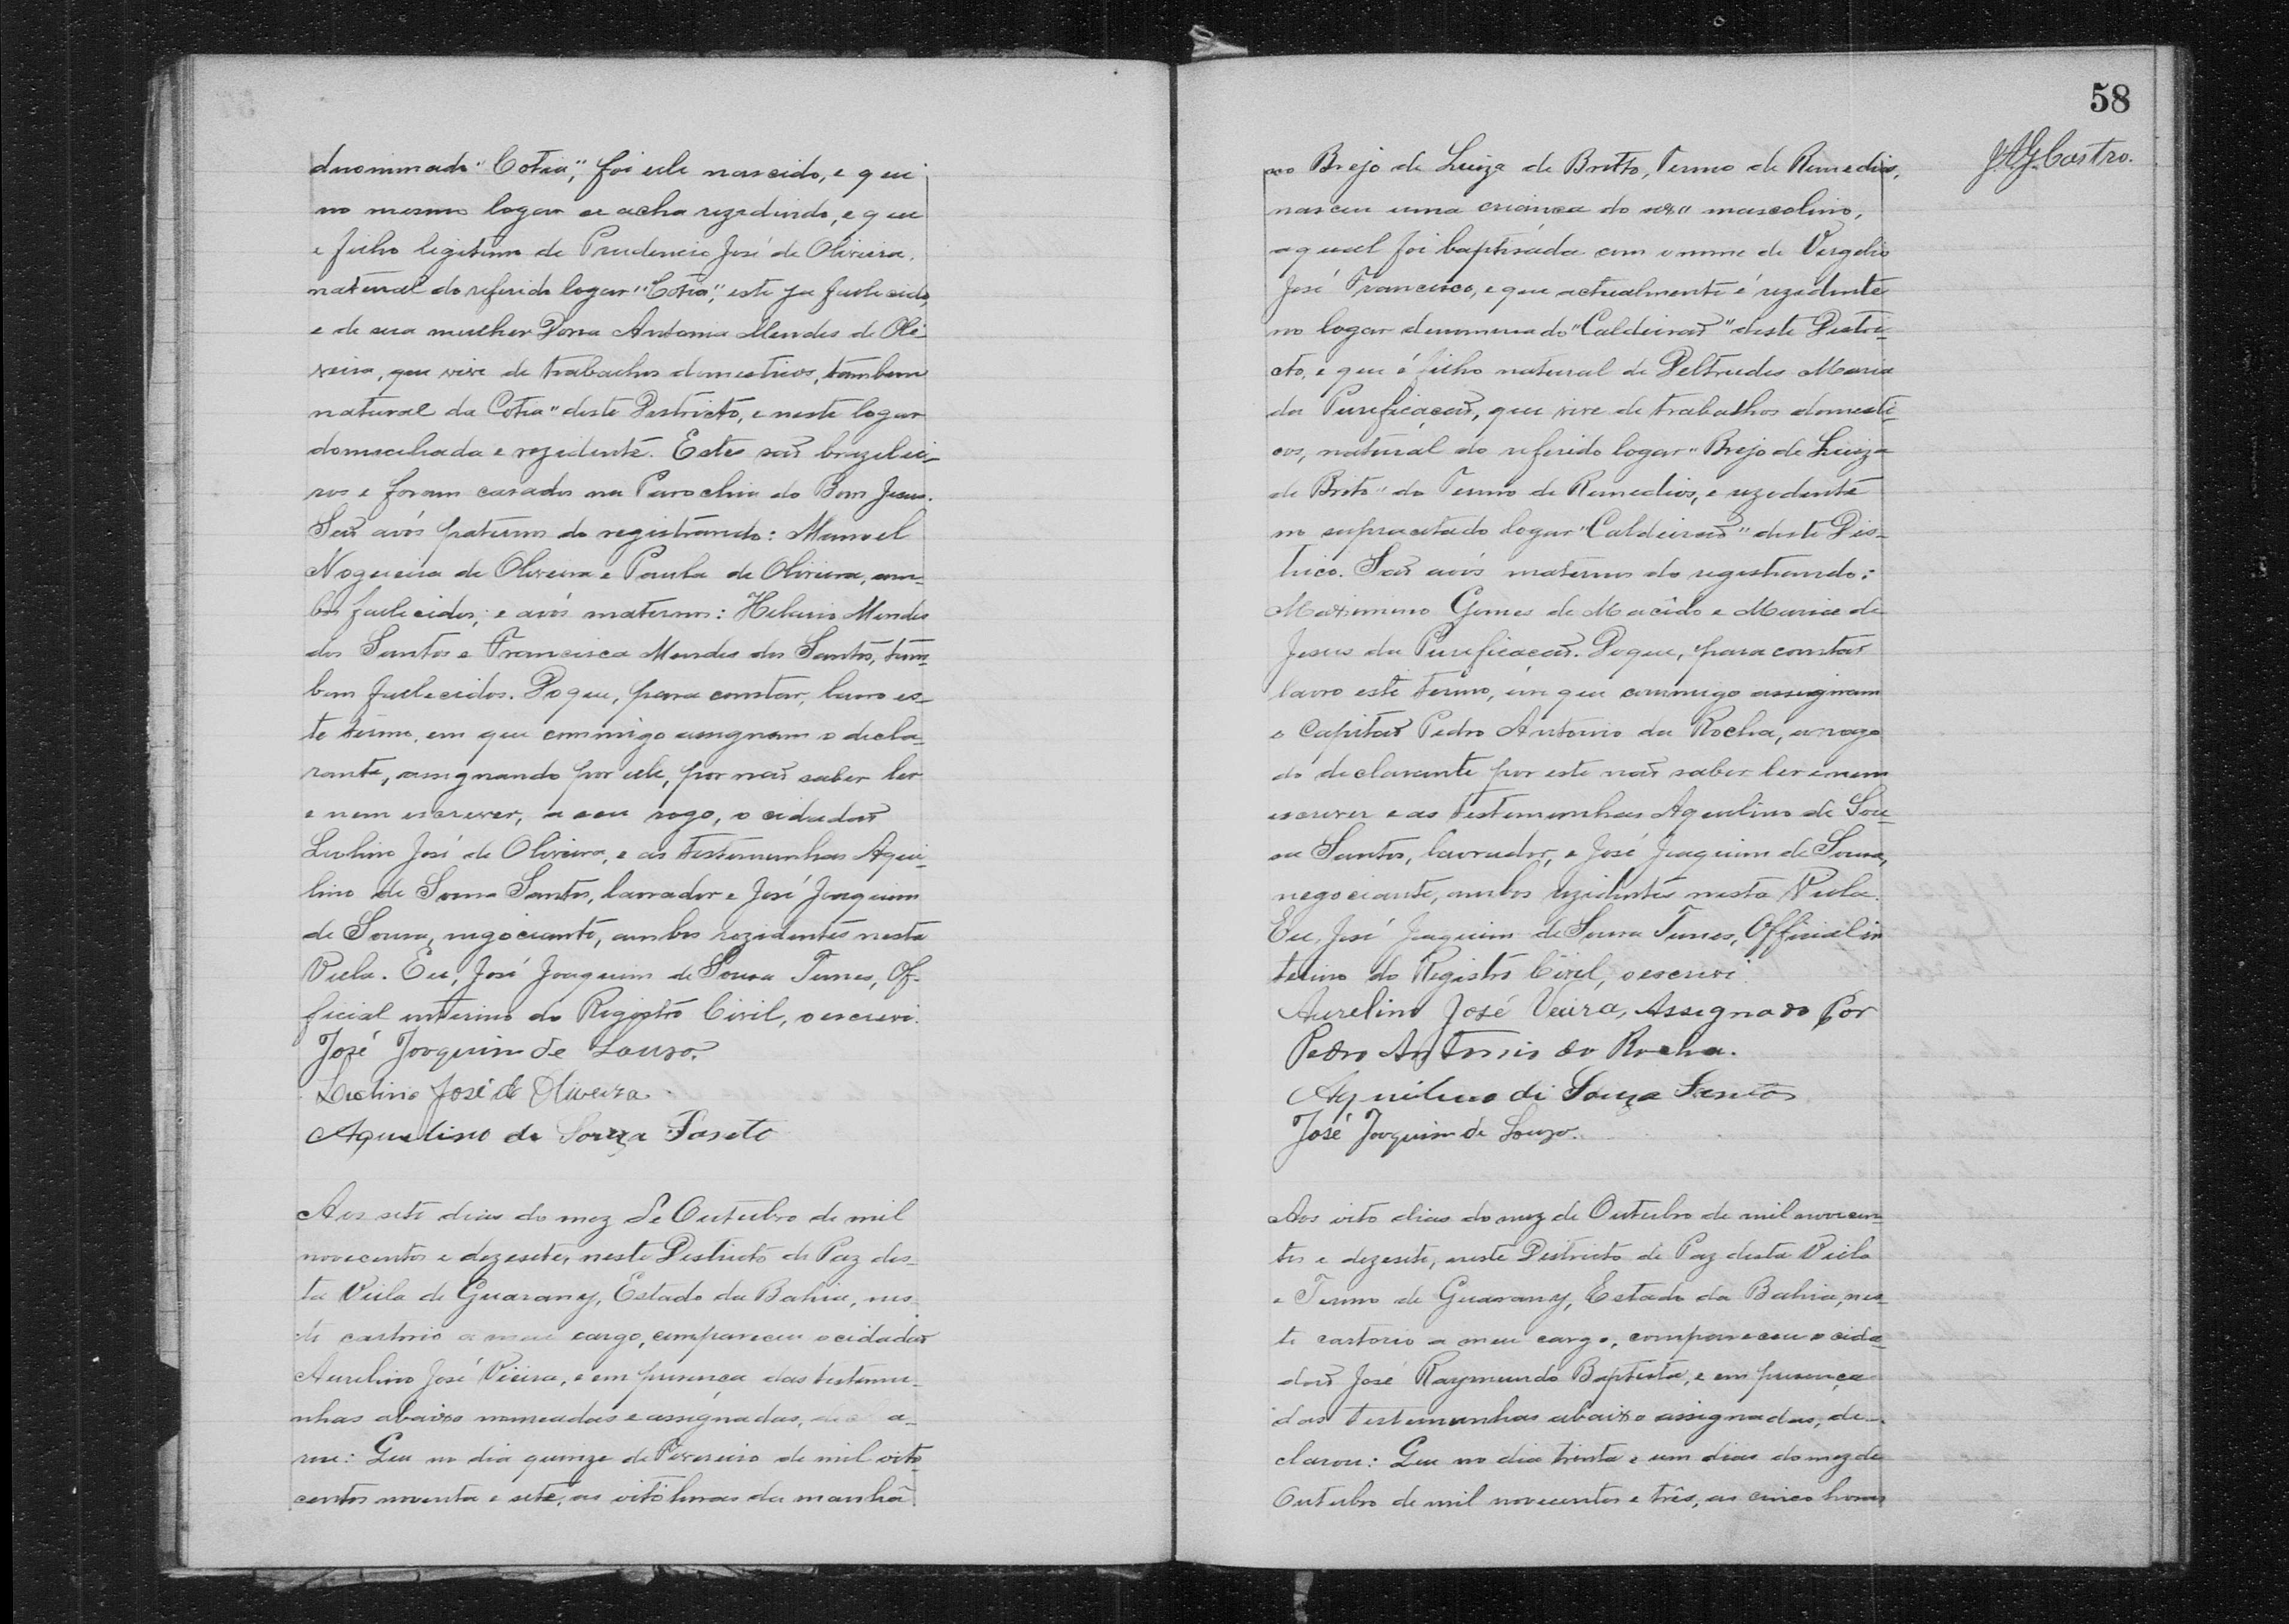 denominado "Cotia", foi elle nascido, e que
no mesmo logar se acha rezedindo, e que
e filho legitimo de Prudencio José de Oliveira,
natural do referido logar "Cotia", este ja fallecido,
e de sua mulher Dona Antonia Mendes de Oli-
veira, que vive de trabalhos domesticos, tambem
natural da Cotia" deste Districto, e neste logar
domiciliada e rezidente. Estes são brazilei-
ros e foram casados na Parochia do Bom Jesus.
São avós paternos do registrando: Manoel
Nogueira de Oliveira e Paula de Oliveira, am-
bos fallecidos; e avós maternos: Hilario Mendes
dos Santos e Francisca Mendes dos Santos, tam-
bem fallecidos. Do que, para constar, lavro es-
te termo, em que commigo assignam o decla-
rante, assignando por elle, por não saber ler
e nem escrever, a seu rogo, o cidadão
Liolino José de Oliveira, e as testemunhas Aqui-
lino de Sousa Santos, lavrador e José Joaquim
de Sousa, negociante, ambos rezidentes nesta
Villa. Eu, José Joaquim de Sousa Tunes, Of-
ficial interino do Registro Civil, o escrevi.
José Joaquim de Souza.
José de Oliveira
Aquelino de Souza Santo
Aos sete dias do mez de Outubro de mil
novecentos e dezesete, neste Districto de Paz des-
ta Villa de Guarany, Estado da Bahia, nes-
te cartorio a meu cargo, compareceu o cidadão
Aurelino José Vieira, e em presença das testemu-
nhas abaixo nomeadas e assignadas, a-
rou: Que no dia quinze de Fevereiro de mil oito-
centos noventa e sete, as oito horas da manhã
58
J. A. G. Castro.
no Brejo de Luiza de Britto, Termo de Remedios,
nasceu uma criança do sexo masculino,
aqual foi baptisada com o nome de Vergelio
José Francisco, e que actualmente é rezedente
no logar denominado "Caldeirão" deste Distri-
cto, e que é filho natural de Deltrudes Maria
da Purificação, que vive de trabalhos domesti-
cos, natural do referido logar "Brejo de Luiza
de Brito" do Termo de Remedios, e rezedente
no supracitado logar "Caldeirão" deste Dis-
trico. São avós maternos do registrando:
Maximino Gomes de Macêdo e Maria de
Jesus da Purificação. Do que, para constar
lavro este termo, em que commigo assignam
o Capitão Pedro Antonio da Rocha, a rogo
do declarante por este não saber ler e nem
escrever e as testemunhas Aquelino de Sou-
sa Santos, lavrador, e José Joaquim de Sousa,
negociante, ambos rezidentes nesta Villa.
Eu, José Joaquim de Sousa Tunes, Official in
terino do Registro Civil, o escrevi
Aurelino José Veira, Assignado Por
Pedro Antonio da Rocha.
Aquilino di Souza Santos
José Joaquim de Souza.
Aos oito dias do mez de Outubro de mil novecen-
tos e dezesete, neste Districto de Paz desta Villa
e Termo de Guarany, Estado da Bahia, nes-
te cartorio a meu cargo, compareceu o cida-
dão José Raymundo Baptista, e em presença
das testemunhas abaixo assignadas, de-
clarou: Que no dia trinta e um dias do mez de
Outubro de mil novecentos e três, as cinco horas